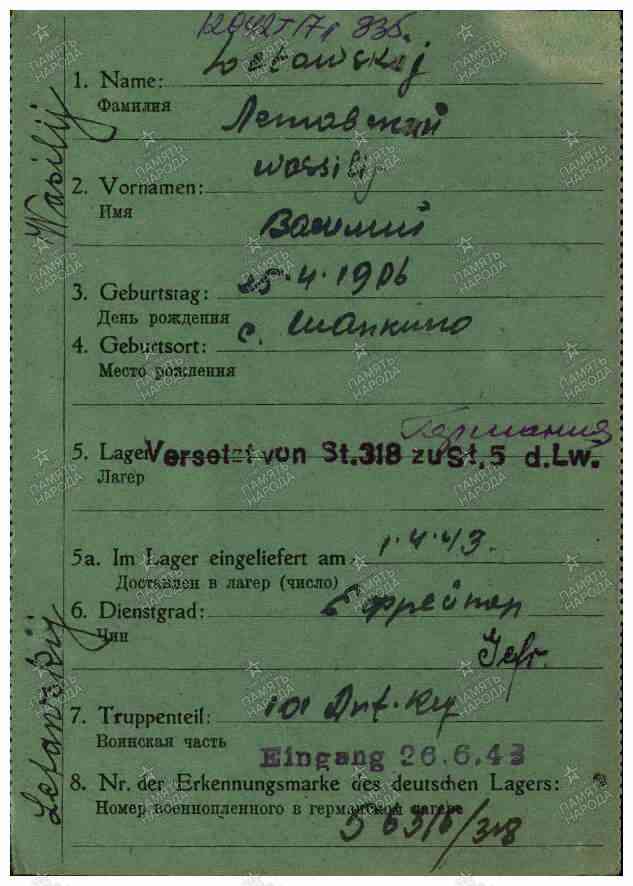 1. Name: Letawskij
Фамилия
Летавский
2. Vornamen: Wassilij
Имя
Василий
3. Geburtstag: 25.4.1906
День рождения
4. Geburtsort: с. Шапкино
Место рождения
Германия
5. Lager Versetzt von St.318 zu St.5 d.Lw.
Лагер
5a. Im Lager eingeliefert am 1.4.43.
Доставлен в лагер (число)
6. Dienstgrad: Ефрейтор
Чин
Gefr.
7. Truppenteil: 101
Воинская часть
Eingang 26.6.43
8. Nr. der Erkennungsmarke des deutschen Lagers:
Номер военнопленного в германском лагере
/318
Wasilij
Letawskij
ПАМЯТЬ НАРОДА